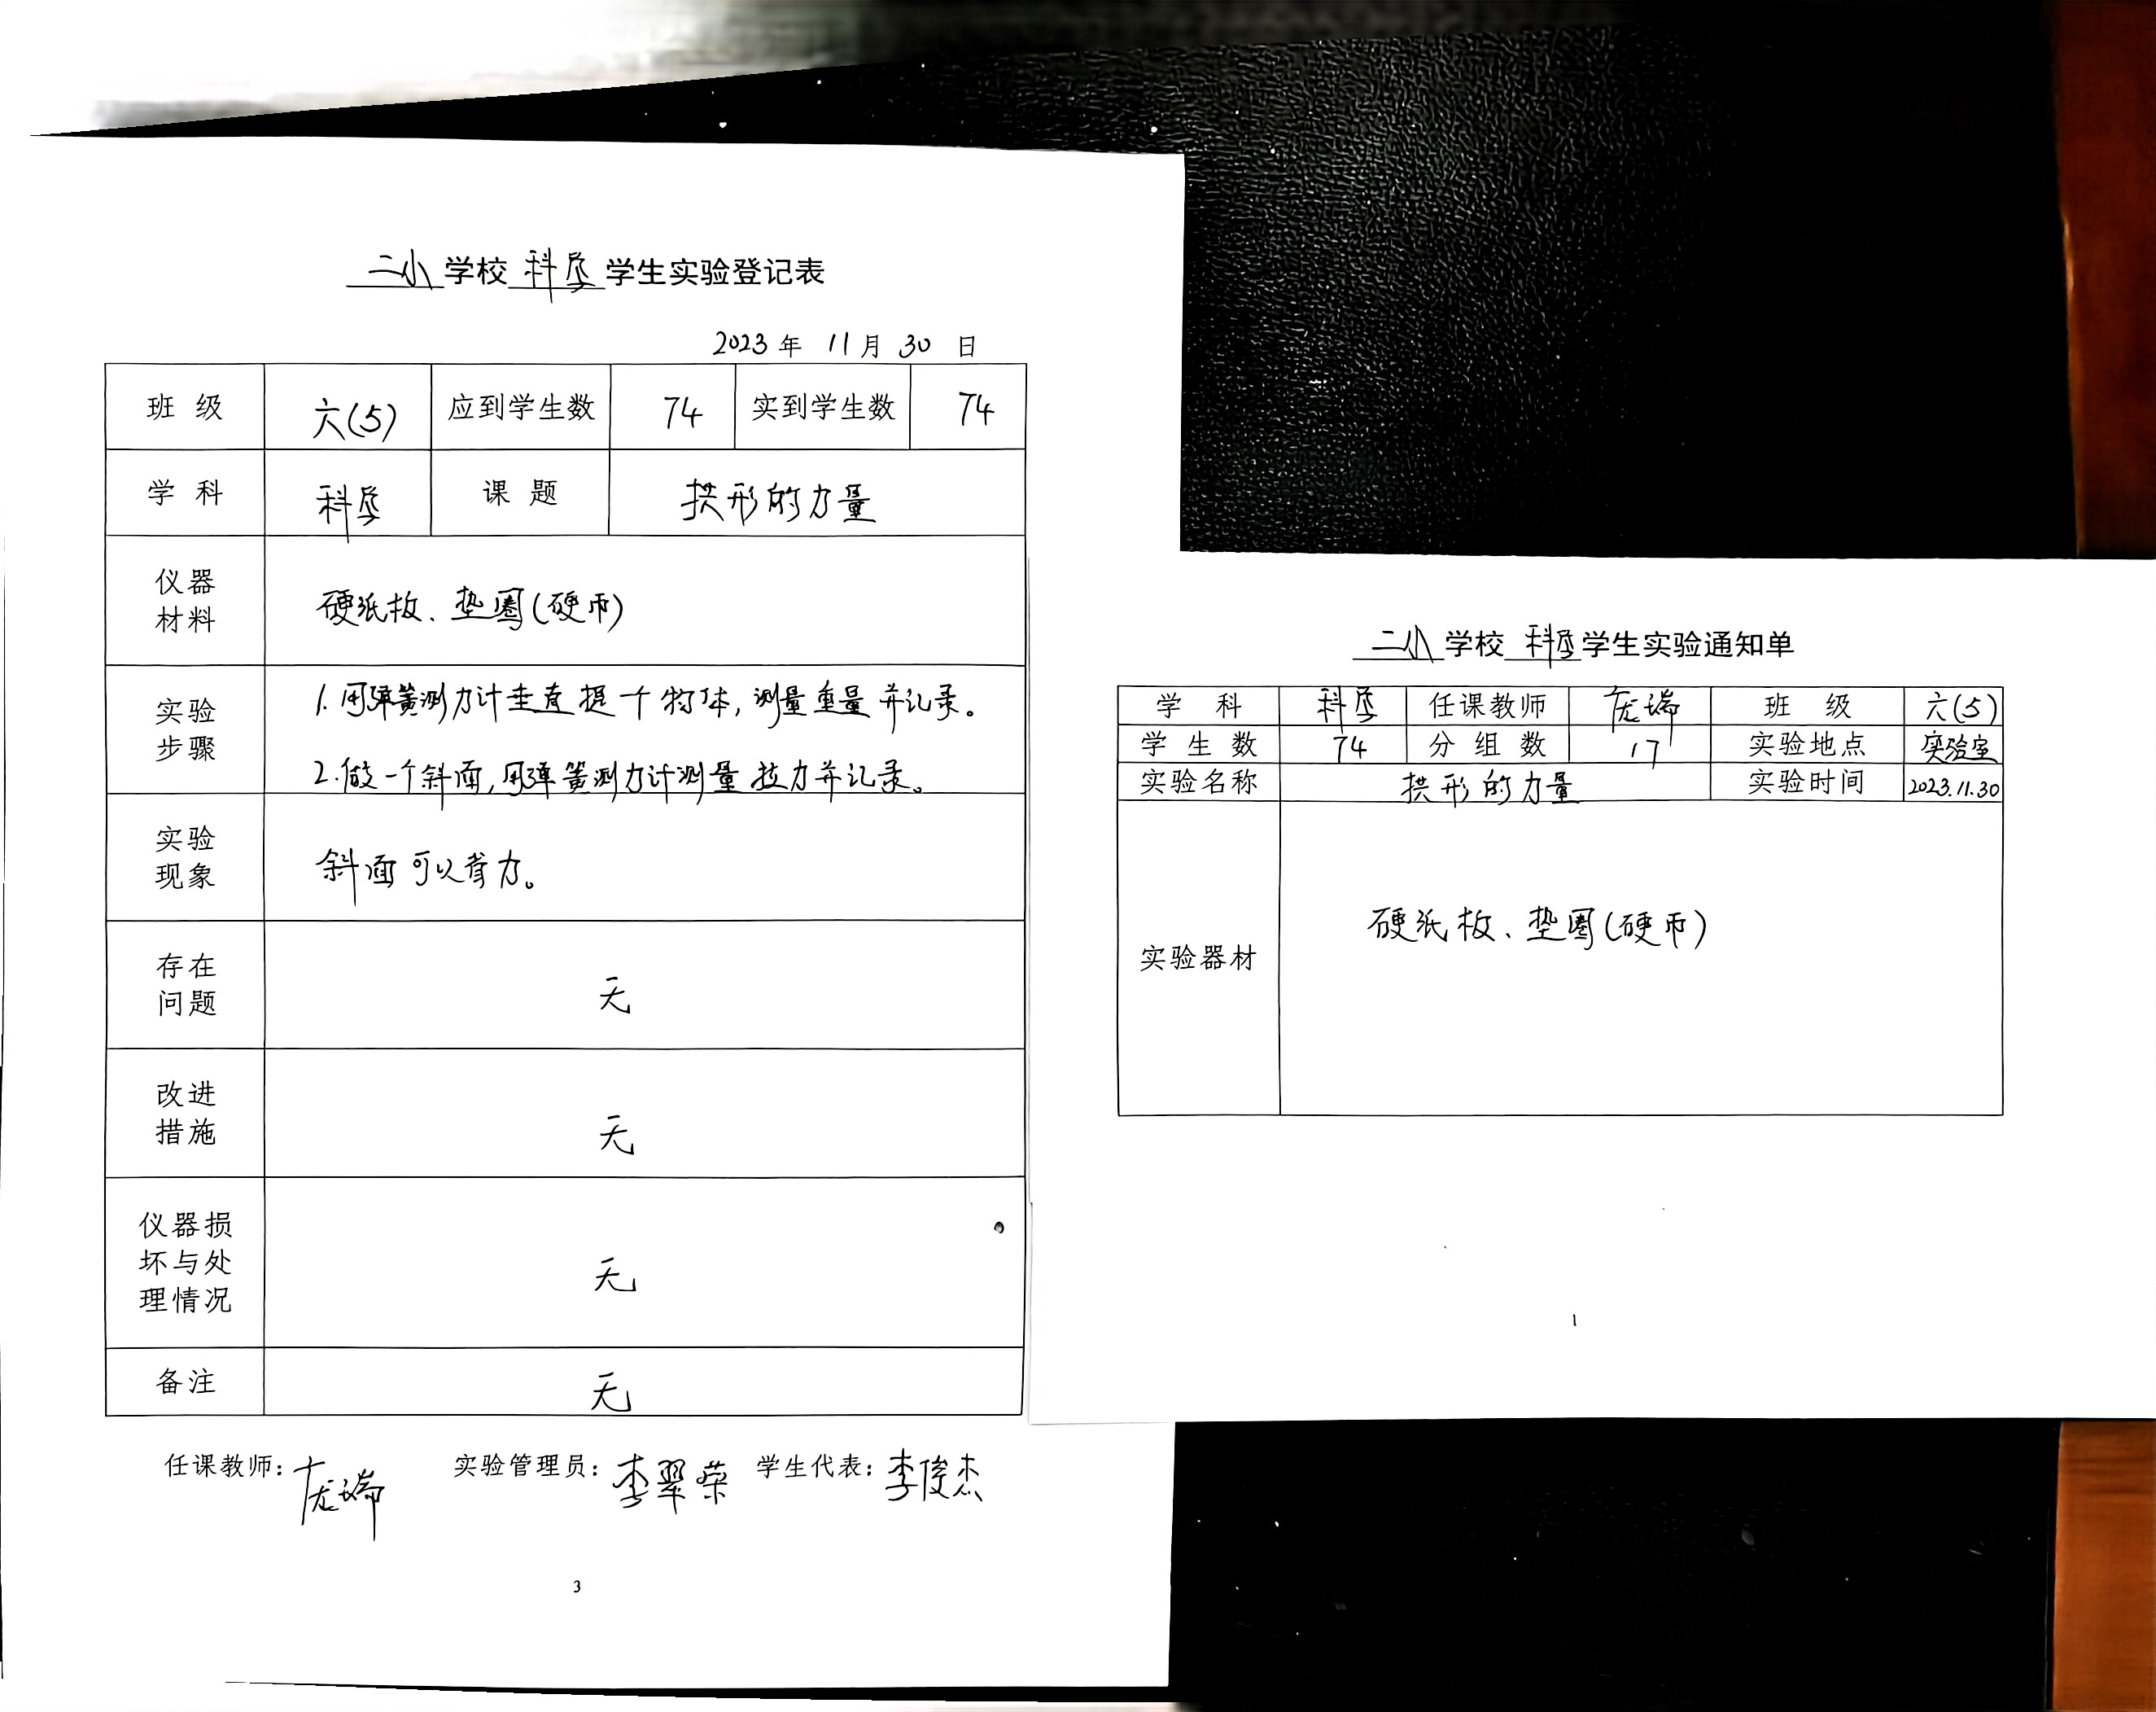 二小学校科学学生实验登记表
2023年 11月 30 日
班级 六(5) 应到学生数 74 实到学生数 74
学科 科学 课题 拱形的力量
仪器
材料
硬纸板、垫圈(硬币)
实验
步骤
1.用弹簧测力计垂直提一个物体,测量重量并记录。
2.做一个斜面,用弹簧测力计测量拉力并记录。
实验
现象
斜面可以省力。
存在
问题
无
改进
措施
无
仪器损
坏与处
理情况
无
备注 无
任课教师:庞瑞 实验管理员:李翠荣 学生代表:李俊杰
3
二小学校科学学生实验通知单
学科 科学 任课教师 庞瑞 班级 六(5)
学生数 74 分组数 17 实验地点 实验室
实验名称 拱形的力量 实验时间 2023.11.30
实验器材 硬纸板、垫圈(硬币)
1